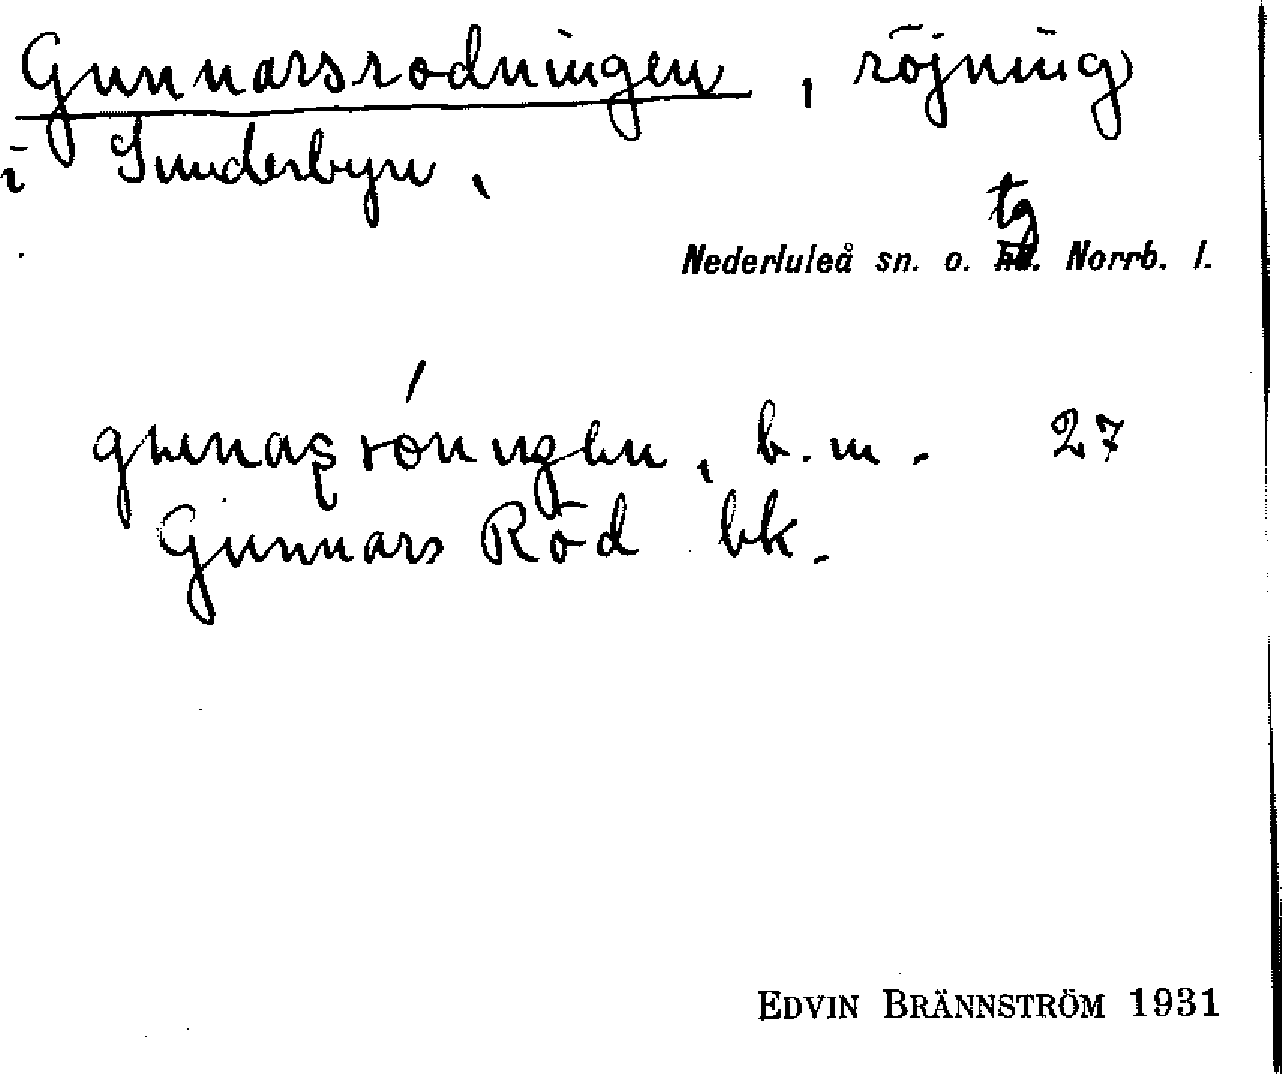 Gunnarsrodningen, röjning
i Sunderbyn,
tg
Nederluleå sn. o. hd. Norrb. l.
b. m. 27
Gunnars Röd bk.
EDVIN BRÄNNSTRÖM 1931